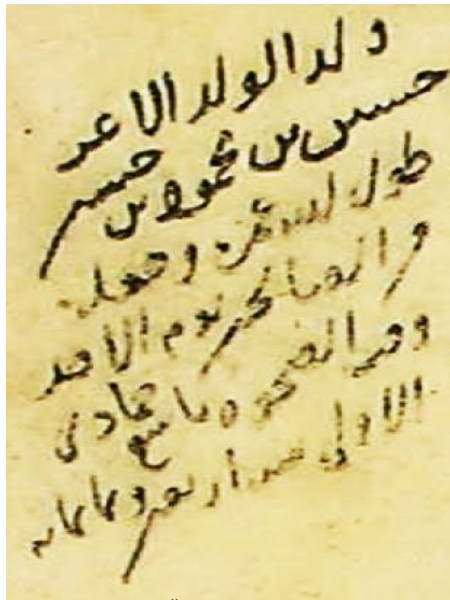 ولد الولد الاعز
حسين بن محمود بن حسن
طول الله عمره وجعله
من الصالحين يوم الاحد
وقت الضحوه تاسع جمادى
الاولى سنه اربعين وثمانمائه